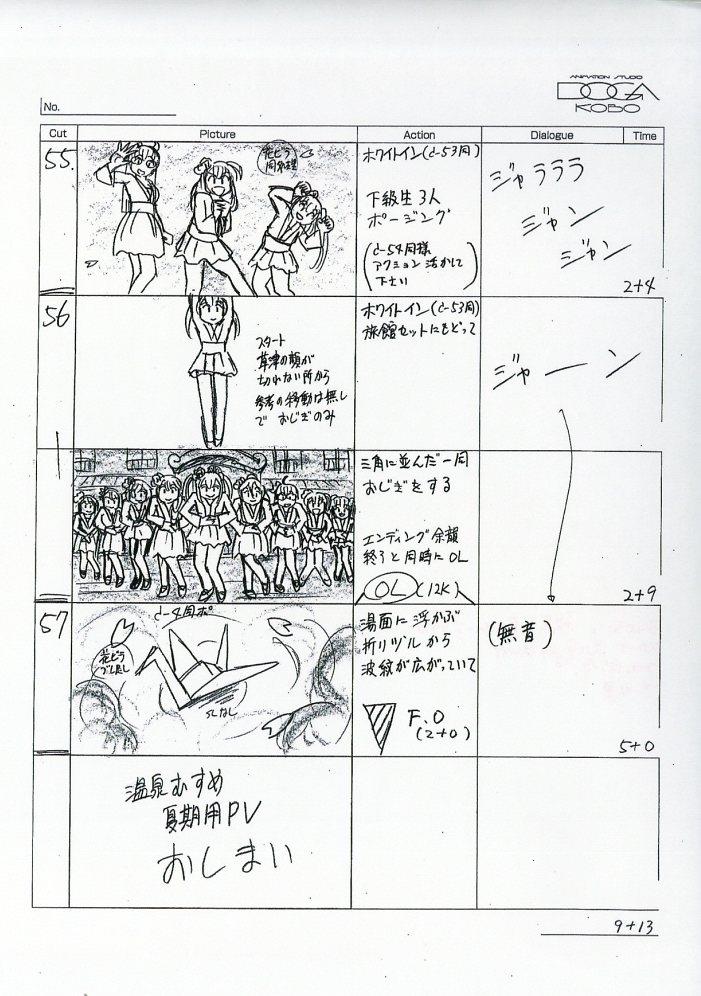 ANIMATION STUDIO
DOGA
KOBO
No.
Cut
Picture
Action
Dialogue
Time
55.
ホワイトイン(C-53同)
下級生3人
ポージング
(C-54同様
アクション活かして
下さい)
ジャラララ
ジャン
ジャン
2+4
56
スタート
草津の顔が
切れない所から
参考の移動は無し
で おじぎのみ
ホワイトイン(C-53同)
旅館セットにもどって
ジャーン
三角に並んだ一同
おじぎをする
エンディング
終ると同時にOL
OL (12K)
2+9
57
C-4同ポ
花びら
湯面に浮かぶ
折りヅルから
波紋が広がっていて
F.O
(2+0)
(無音)
5+0
温泉むすめ
夏期用PV
おしまい
9+13